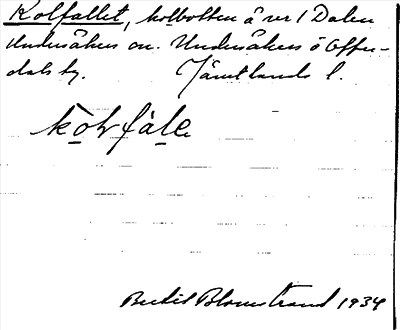 Kolfallet, kolbotten å ver i Dalen
Undersåkers sn. Undersåkers o Offer-
dals tg. Jämtlands l.
kol fàlə
Bertil Blomstrand 1934